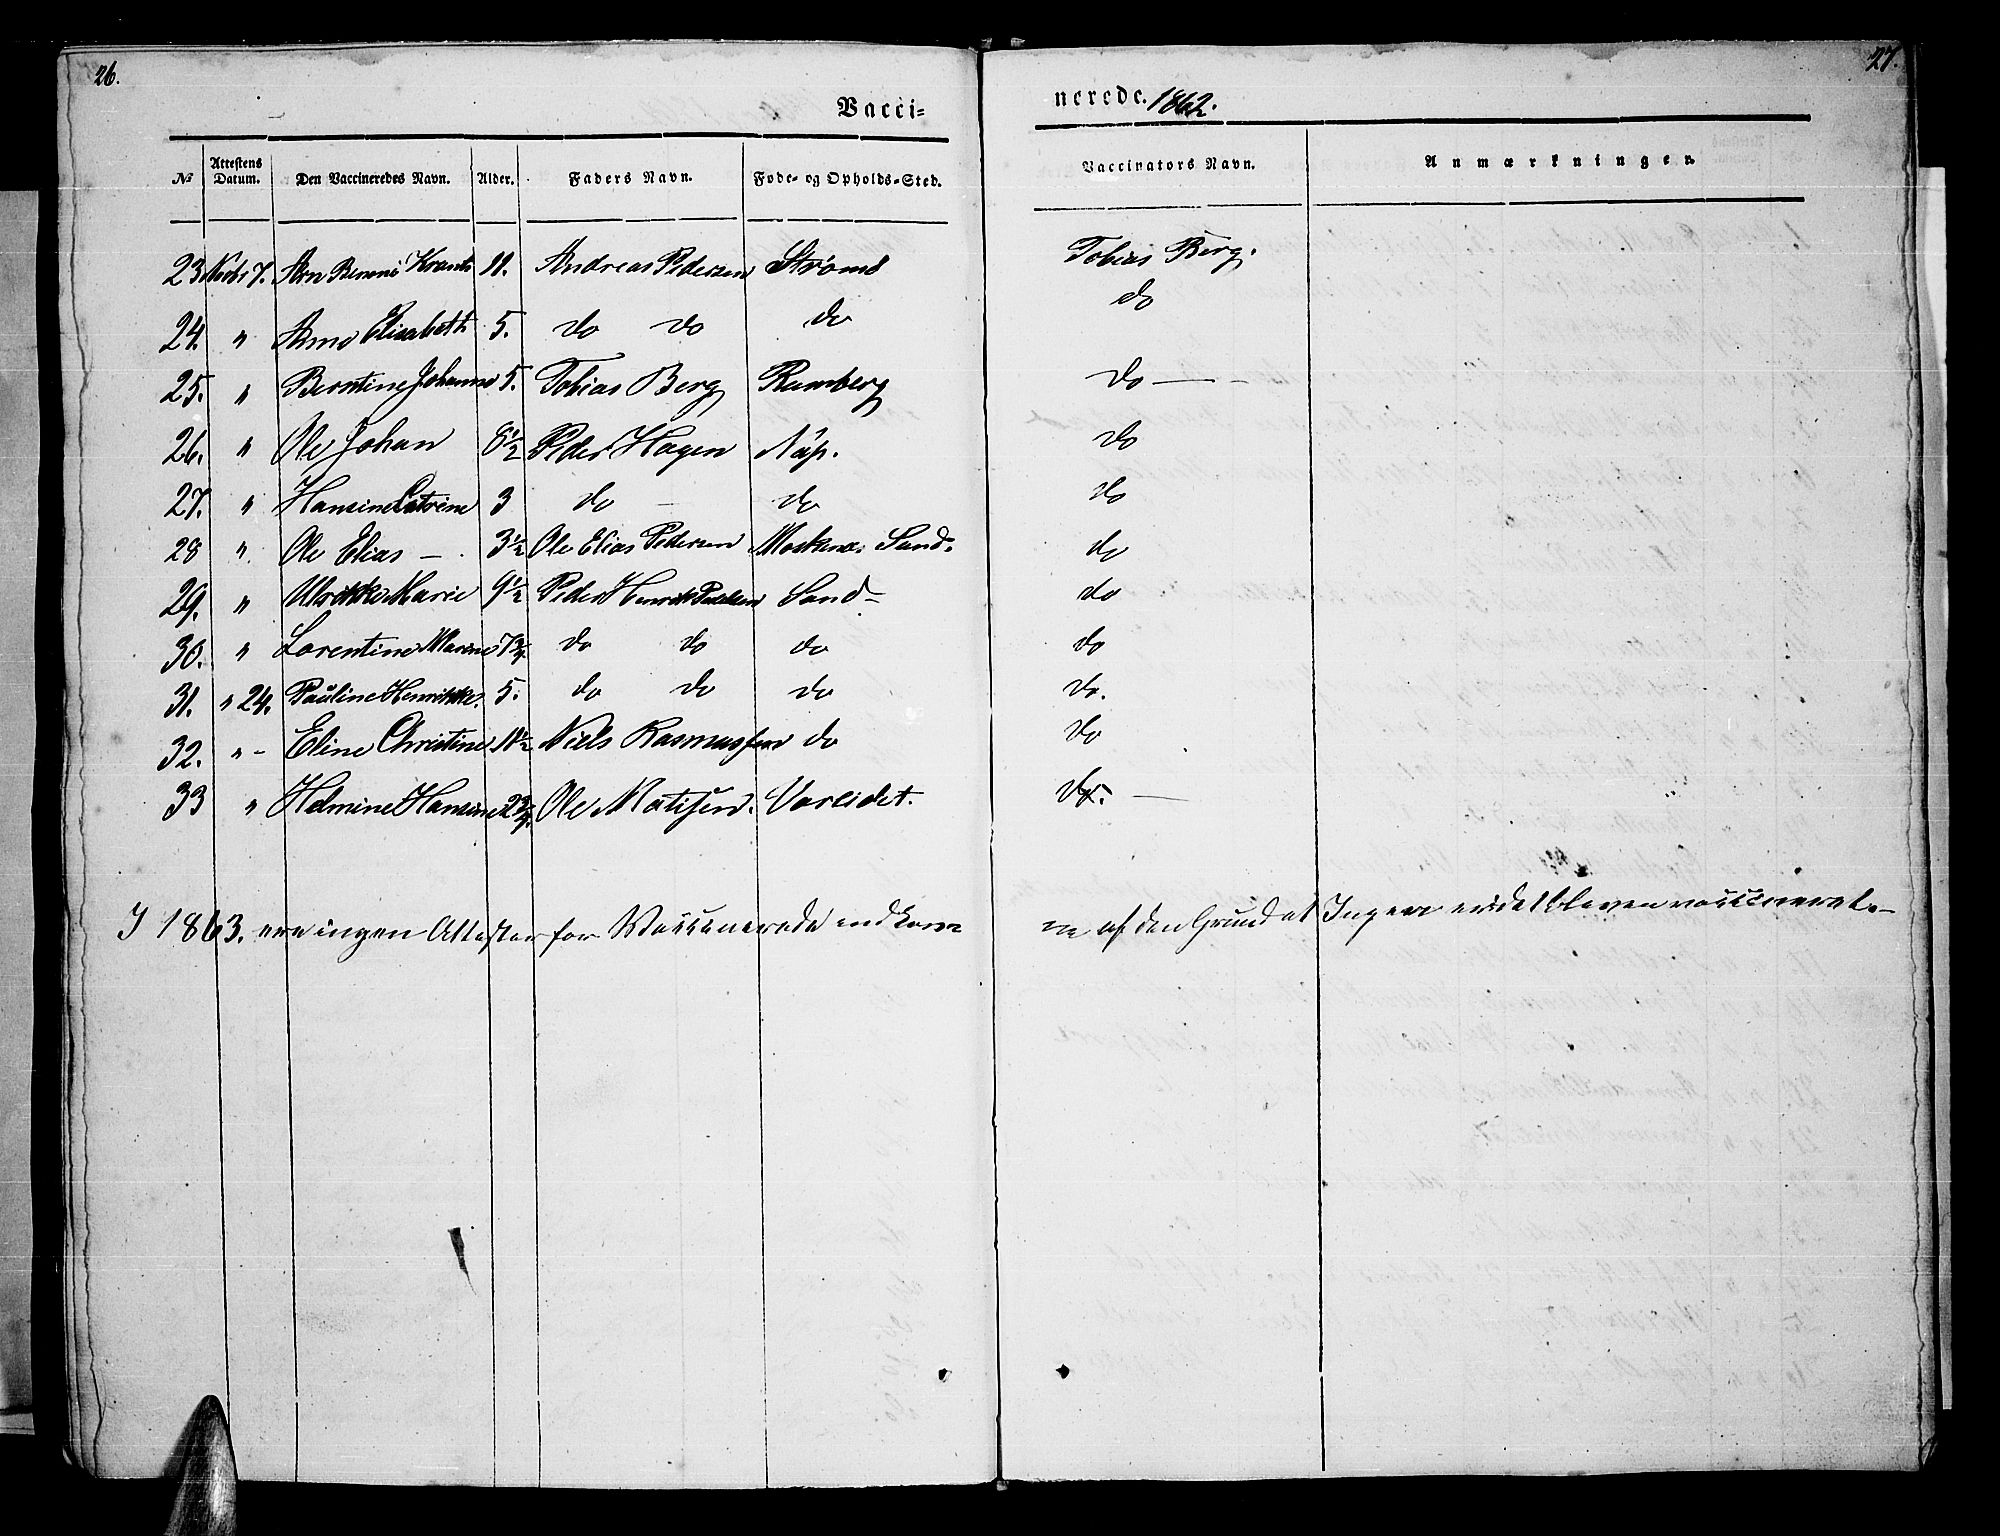 26.
27.
Vacci=
nerede. 1862.
№ Attestens Datum. Den Vaccineredes Navn. Alder. Faders Navn. Føde= og Opholds=Sted. Vaccinators Navn. Anmærkninger.
23. Novbr 7. Arn 11. Andreas Pedersen Strømø Tobias Berg.
24. " Anne Elisabeth 5. do do do do
25. " Berntine Johanne 5. Tobias Berg Ramberg do —
26. " Ole Johan 8½ Peder Hagen Nap. do
27. " Hansine Catrine 3 do — do do
28 " Ole Elias — 3½ Ole Elias Pedersen Moskenæs Sund- do
29. " Ulrikke Marie 9½ Peder Henrik Pedersen Sand- do
30. " Lorentine Marine 7¾ do do do do
31. " 24. Pauline Henrikke. 5. do do do do.
32. " - Eline Christine 11½ Niels Rasmussen do do
33 " Helmine Hansine 2¾. Ole Matisen. Vareidet. do. —
I 1863. ere ingen Attester for Vaccinerede indkom= ne af den Grund at Ingen er det bleven vaccineret.-